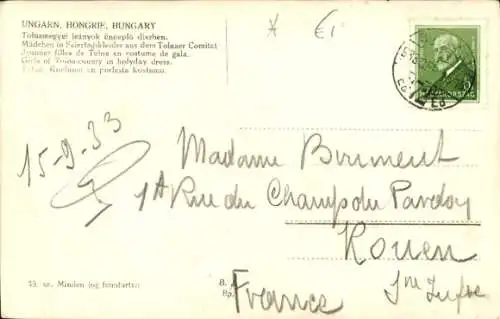 UNGARN, HONGRIE, HUNGARY
Tolnamegyei leányok ünneplő díszben.
Mädchen in Feiertagskleider aus dem Tolnaer Comitat
Jeunes filles de Tolna en costume de gala.
Girls of Tolna-county in holyday dress.
€1
MAGYARORSZÁG
15-9-33
Madame Birment
1A Rue du Champ du Pardoy
Rouen
Sne Infre
France
13. sz. Minden jog fenntartva
B.
Bp.